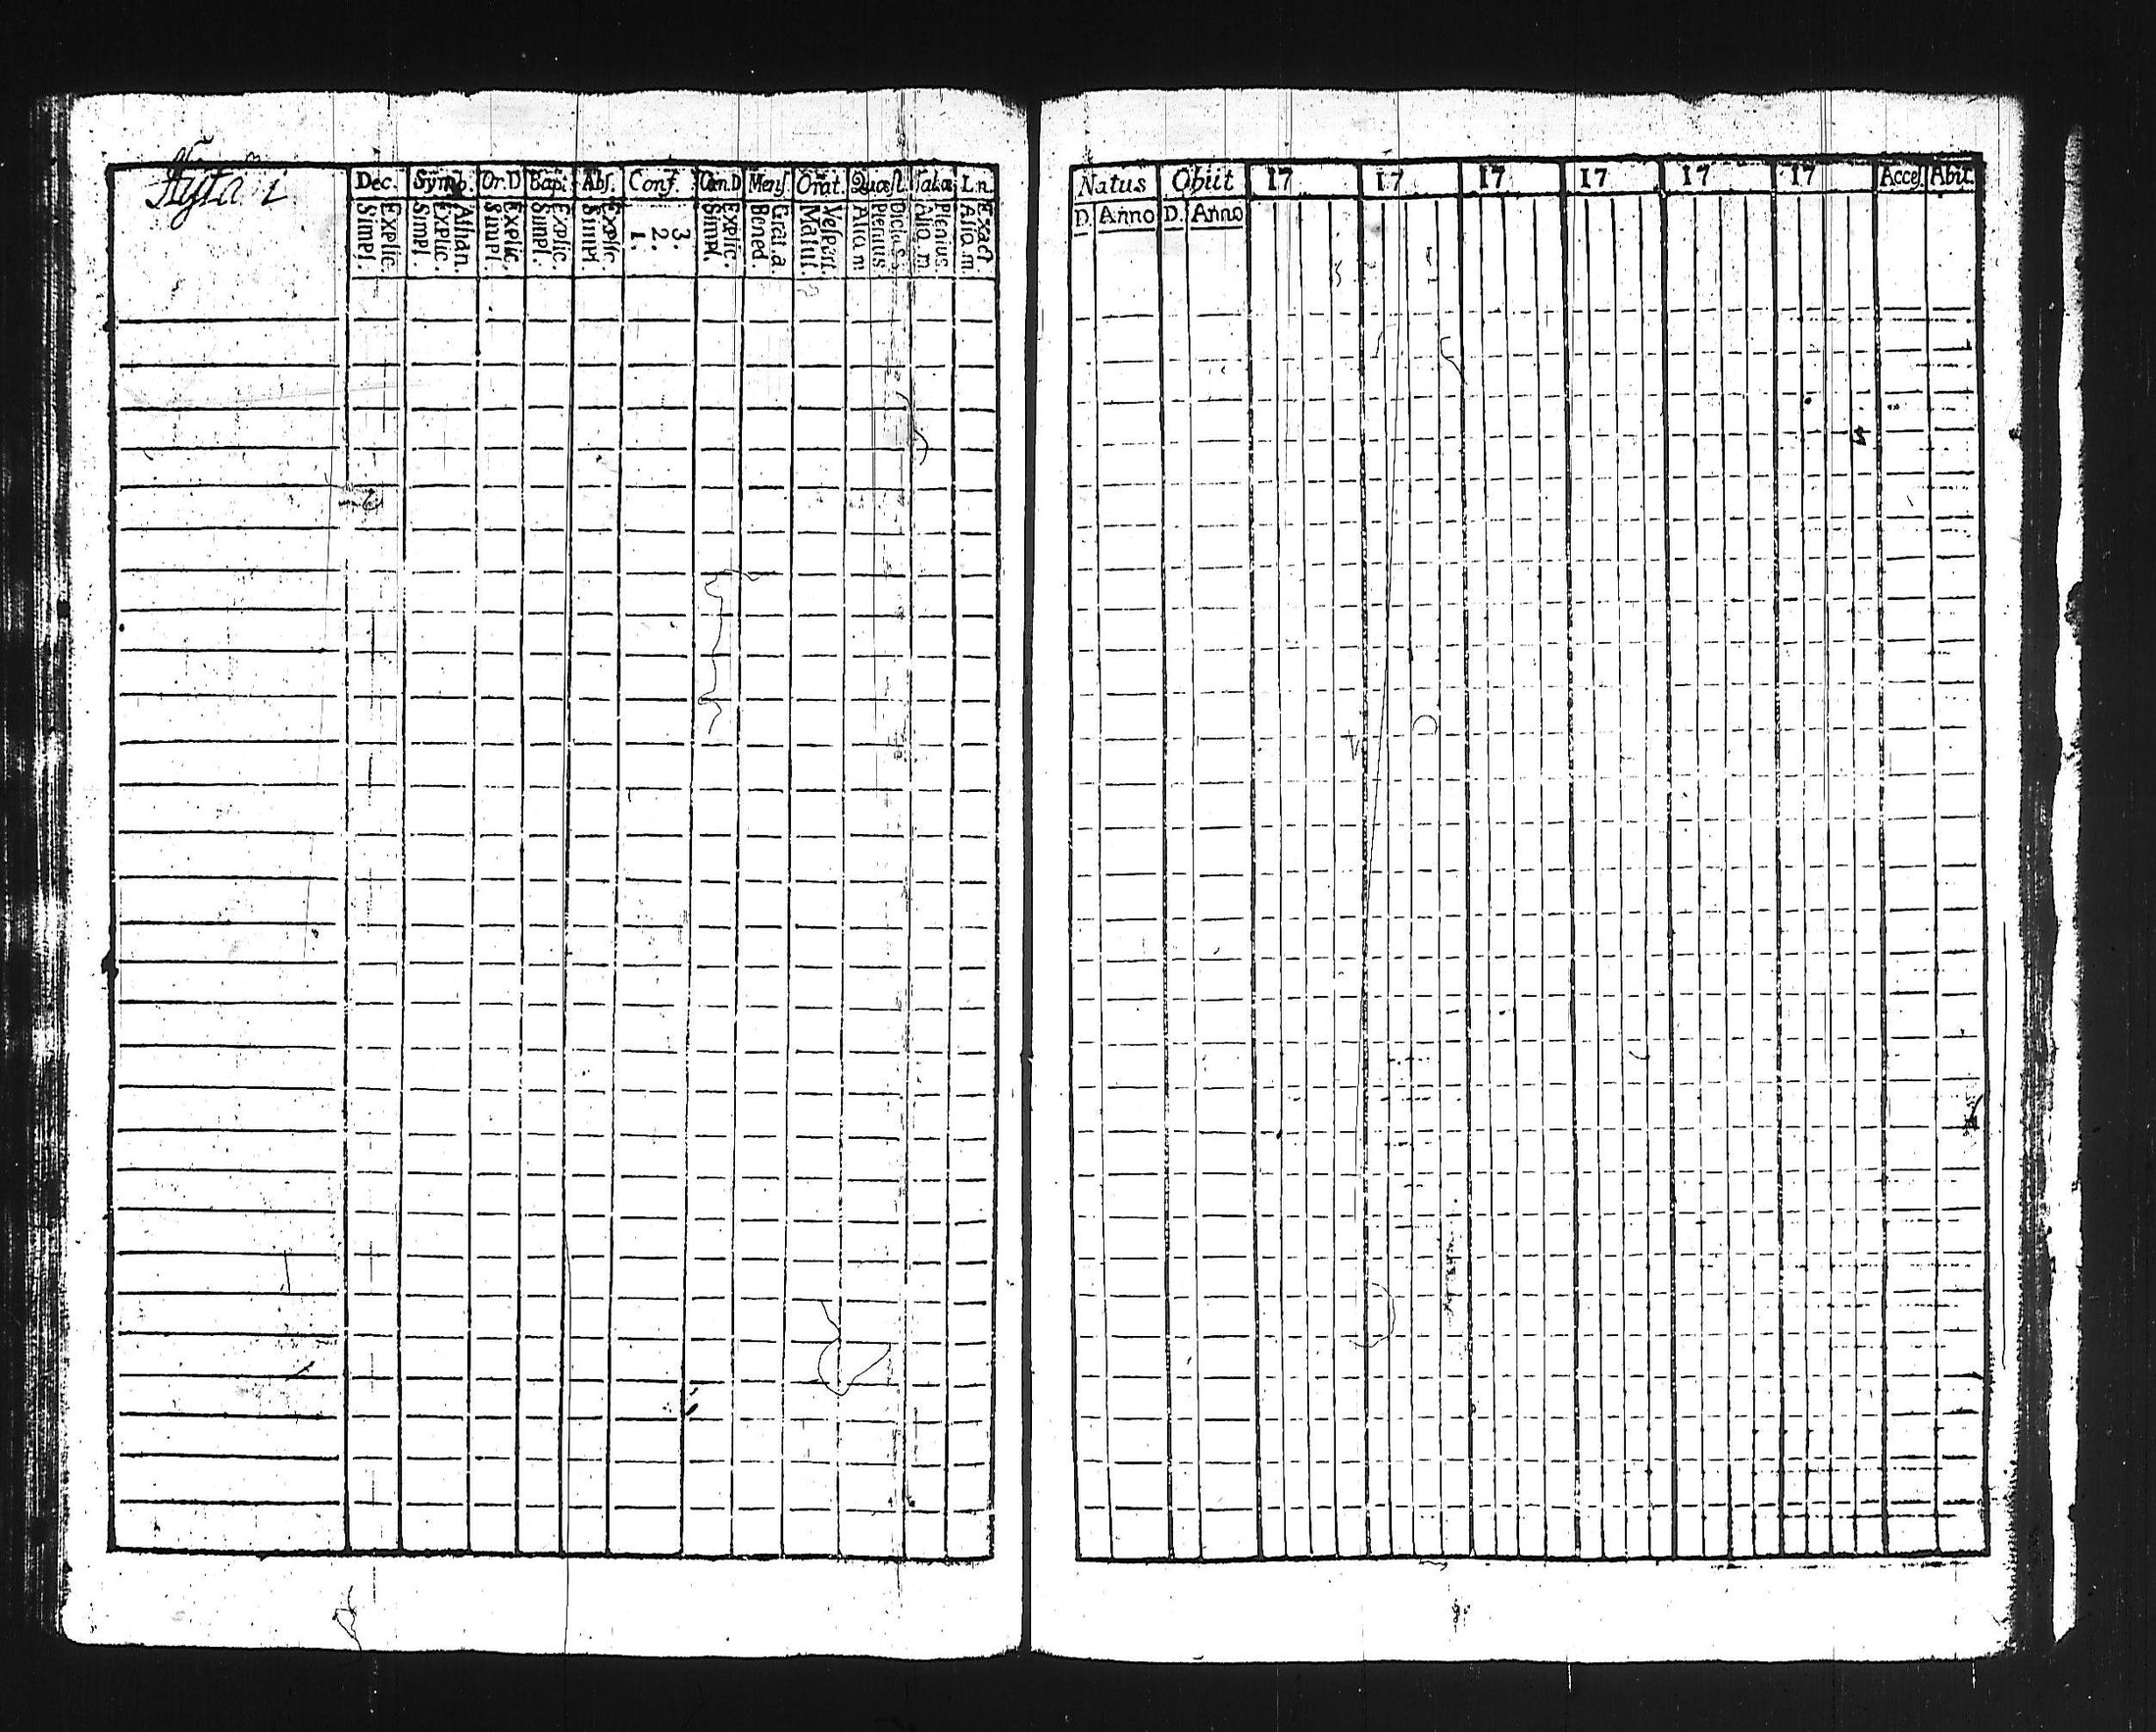 Dec. Symb. Or.D Bapt. Abs. Conf. Cœn.D Mens. Orat. Quæst. Tabæ L.n.
Explic. Simpl. Athan. Explic. Simpl. Explic. Simpl. Explic. Simpl. Explic. Simpl. 3. 2. 1. Explic. Simpl. Grat.a. Bened. Vespert. Matut. Dicta S. Plenius Aliq.m. Plenius. Aliq.m. Exact Aliq.m.
Natus Obiit 17 17 17 17 17 17 Acces. Abit.
D. Anno D. Anno